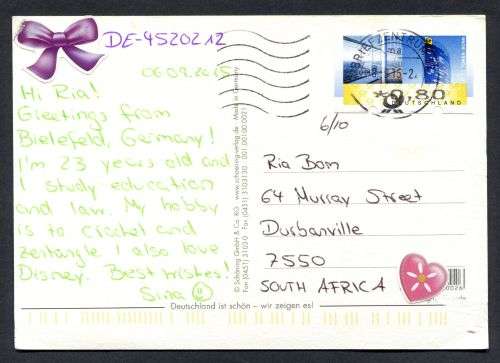 DE-4520212
06.08.2015
Hi Ria!
Greetings from
Bielefeld, Germany!
I'm 23 years old and
I study education
and law. My hobby
is to crochet and
zentangle. I also love
Disney. Best wishes!
Sina
© Schöning GmbH & Co. KG · www.schoening-verlag.de Made in Germany
Fax (0451) 31030 Fon (0451) 3103130 001 00100 0021
Deutschland ist schön – wir zeigen es!
BRIEFZENTRUM
*0,80
DEUTSCHLAND
6/10
Ria Bom
64 Murray Street
Durbanville
7550
SOUTH AFRICA